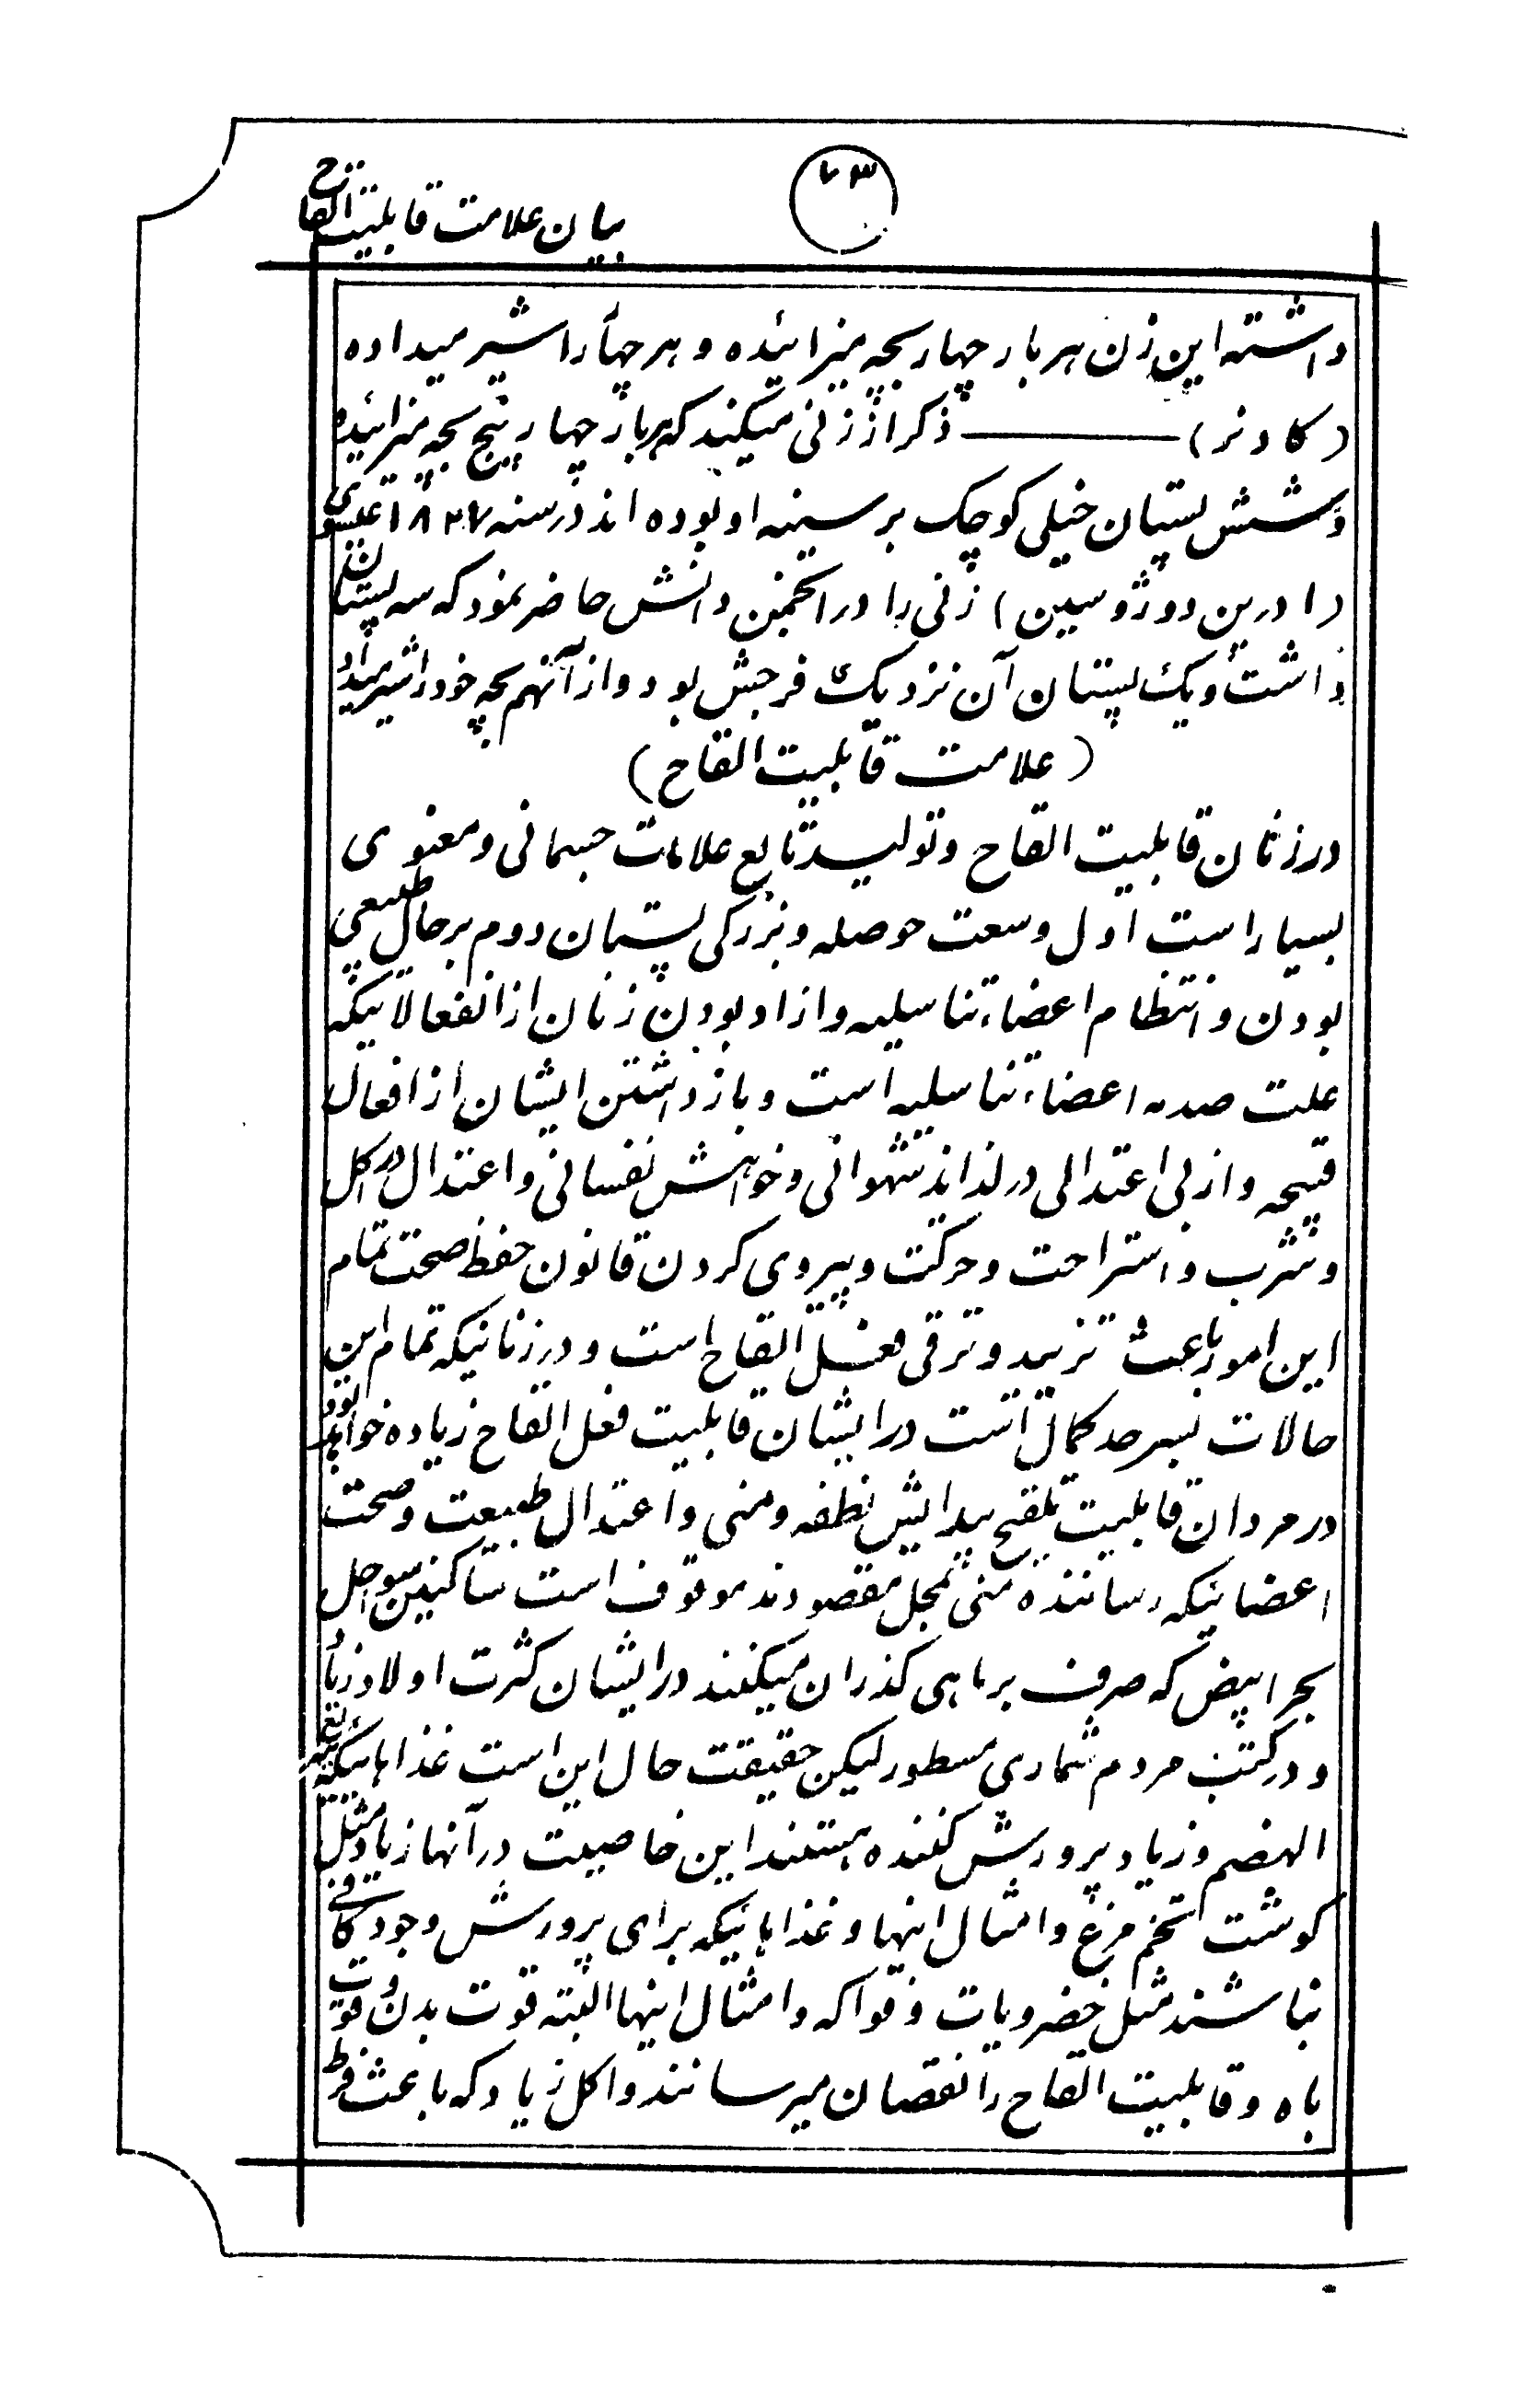 بیان علامت قابلیت القاح
۷۳
داشته این زن هر بار چهار بچه میزائیده و هر چهار را شیر میداده
(کاونر) ــــــــ ذکر از زنی میکند که هر بار چهار پنج بچه میزائیده
و شش پستان خیلی کوچک بر سینه او بوده اند در سنه ۱۸۲۷ عیسوی
(ادرین دو ژوسین) زنی را در انجمن دانش حاضر نمود که سه پستان
داشت و یک پستان آن نزدیک فرجش بود و از آنهم بچه خود را شیر میداد
(علامت قابلیت القاح)
در زنان قابلیت القاح و تولید تابع علامات جسمانی و معنوی
بسیار است اول وسعت حوصله و بزرگی پستان دوم بر حال طبیعی
بودن و انتظام اعضاء تناسلیه و ازاد بودن زنان از انفعالاتیکه
علت صدمه اعضاء تناسلیه است و باز داشتن ایشان از افعال
قبیحه و از بی اعتدالی در لذائذ شهوانی و خواهش نفسانی و اعتدال در اکل
و شرب و استراحت و حرکت و پیروی کردن قانون حفظ صحت تمام
این امور باعث تزیید و ترقی فعل القاح است و در زنانیکه تمام این
حالات بسر حد کمال است در ایشان قابلیت فعل القاح زیاده خواهد بود
در مردان قابلیت تلقیح بپدایش نطفه و منی و اعتدال طبیعت و صحت
اعضائیکه رساننده منی بمحل مقصودند موقوف است ساکنین سواحل
بحر ابیض که صرف بر ماهی گذران میکنند در ایشان کثرت اولاد زیاد
و در کتب مردم شماری مسطور لیکن حقیقت حال این است غذاهائیکه سریع
الهضم و زیاد پرورش کننده هستند این خاصیت در آنها زیاد مثل
گوشت تخم مرغ و امثال اینها و غذاهائیکه برای پرورش وجود کافی
نباشند مثل خضرویات و فواکه و امثال اینها البته قوت بدن و قوت
باه و قابلیت القاح را نقصان میرسانند و اکل زیاد که باعث فرط